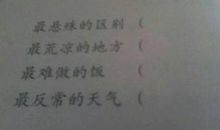 最悬殊的区别（
最荒凉的地方（
最难做的饭（
最反常的天气（